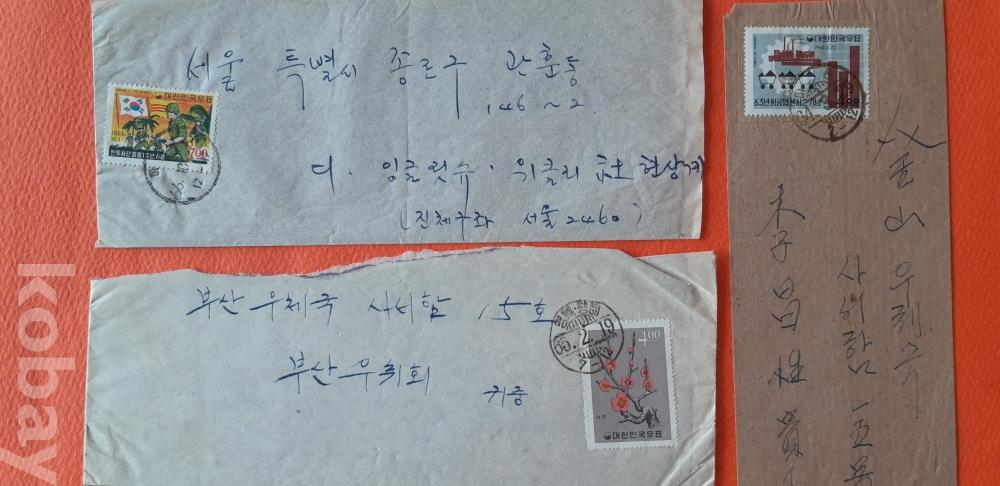 서울 특별시 종로구 관훈동
146~2
더·잉글릿슈·위클리 社 현상계
(진체구좌 서울 2460)
대한민국우표
1966
700
부산우체국 사서함 15호
부산우취회 귀중
65.2.19
4.00
대한민국우표
대한민국우표
釜山 우체국
사서함 一五号
李昌性 貴
kobay